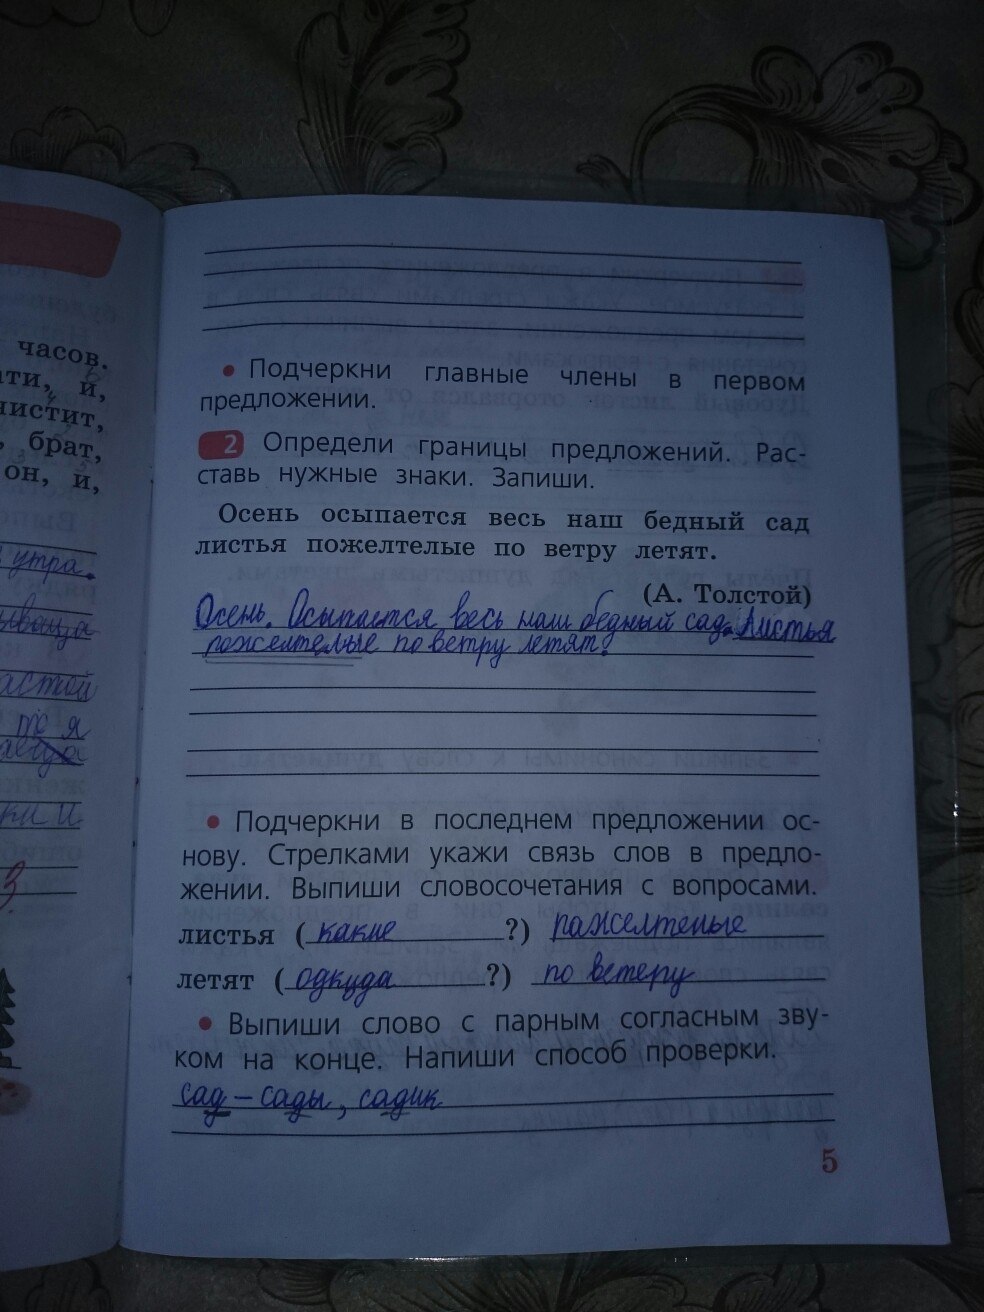 часов.
ати, и,
чистит,
брат,
он, и,
утра.
• Подчеркни главные члены в первом
предложении.
2 Определи границы предложений. Рас-
ставь нужные знаки. Запиши.
Осень осыпается весь наш бедный сад
листья пожелтелые по ветру летят.
(А. Толстой)
Осень. Осыпается весь наш бедный сад. Листья
пожелтелые по ветру летят.
• Подчеркни в последнем предложении ос-
нову. Стрелками укажи связь слов в предло-
жении. Выпиши словосочетания с вопросами.
листья (какие?) пажелтеные
летят (одкуда?) по ветеру
• Выпиши слово с парным согласным зву-
ком на конце. Напиши способ проверки.
сад – сады, садик
5